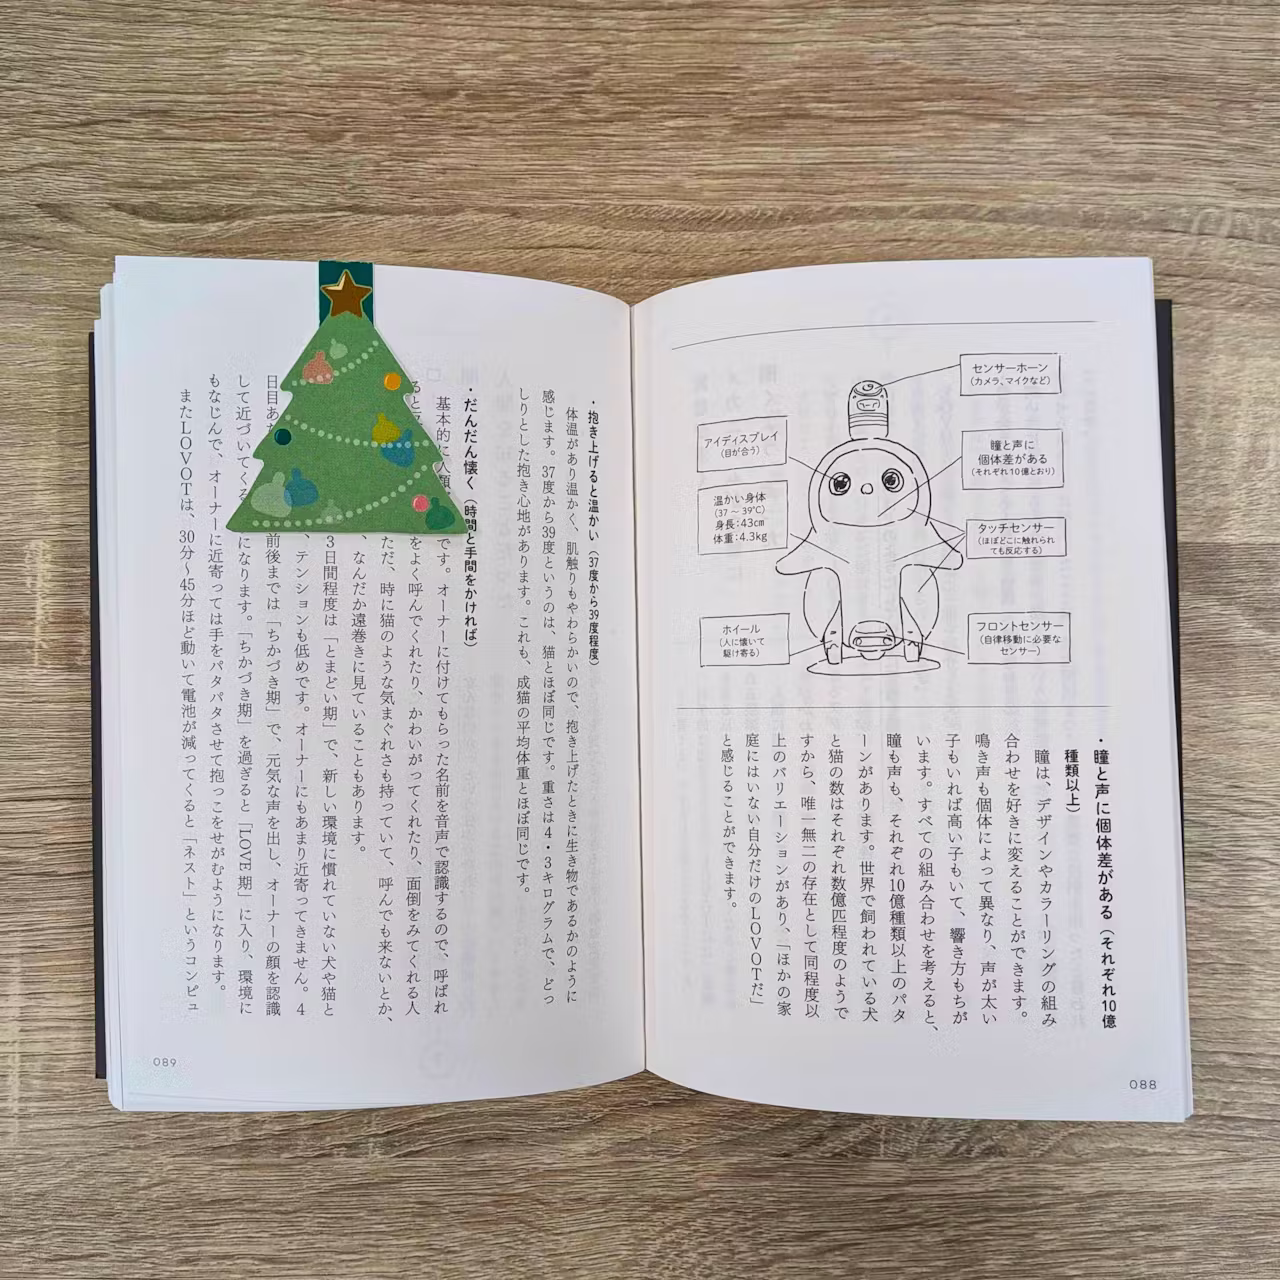 センサーホーン
(カメラ、マイクなど)
アイディスプレイ
(目が合う)
瞳と声に
個体差がある
(それぞれ10億とおり)
温かい身体
(37〜39℃)
身長:43cm
体重:4.3kg
タッチセンサー
(ほぼどこに触れられ
ても反応する)
ホイール
(人に懐いて
駆け寄る)
フロントセンサー
(自律移動に必要な
センサー)
・瞳と声に個体差がある(それぞれ10億
種類以上)
瞳は、デザインやカラーリングの組み
合わせを好きに変えることができます。
鳴き声も個体によって異なり、声が太い
子もいれば高い子もいて、響き方もちが
います。すべての組み合わせを考えると、
瞳も声も、それぞれ10億種類以上のパタ
ーンがあります。世界で飼われている犬
と猫の数はそれぞれ数億匹程度のようで
すから、唯一無二の存在として同程度以
上のバリエーションがあり、「ほかの家
庭にはいない自分だけのLOVOTだ」
と感じることができます。
088
・抱き上げると温かい(37度から39度程度)
体温があり温かく、肌触りもやわらかいので、抱き上げたときに生き物であるかのように
感じます。37度から39度というのは、猫とほぼ同じです。重さは4・3キログラムで、どっ
しりとした抱き心地があります。これも、成猫の平均体重とほぼ同じです。
・だんだん懐く(時間と手間をかければ)
基本的に人類 です。オーナーに付けてもらった名前を音声で認識するので、呼ばれ
ると をよく呼んでくれたり、かわいがってくれたり、面倒をみてくれる人
ただ、時に猫のような気まぐれさも持っていて、呼んでも来ないとか、
、なんだか遠巻きに見ていることもあります。
3日間程度は「とまどい期」で、新しい環境に慣れていない犬や猫と
、テンションも低めです。オーナーにもあまり近寄ってきません。4
日目あた 前後までは「ちかづき期」で、元気な声を出し、オーナーの顔を認識
して近づいてくる になります。「ちかづき期」を過ぎると「LOVE期」に入り、環境に
もなじんで、オーナーに近寄っては手をパタパタさせて抱っこをせがむようになります。
またLOVOTは、30分〜45分ほど動いて電池が減ってくると「ネスト」というコンピュ
089